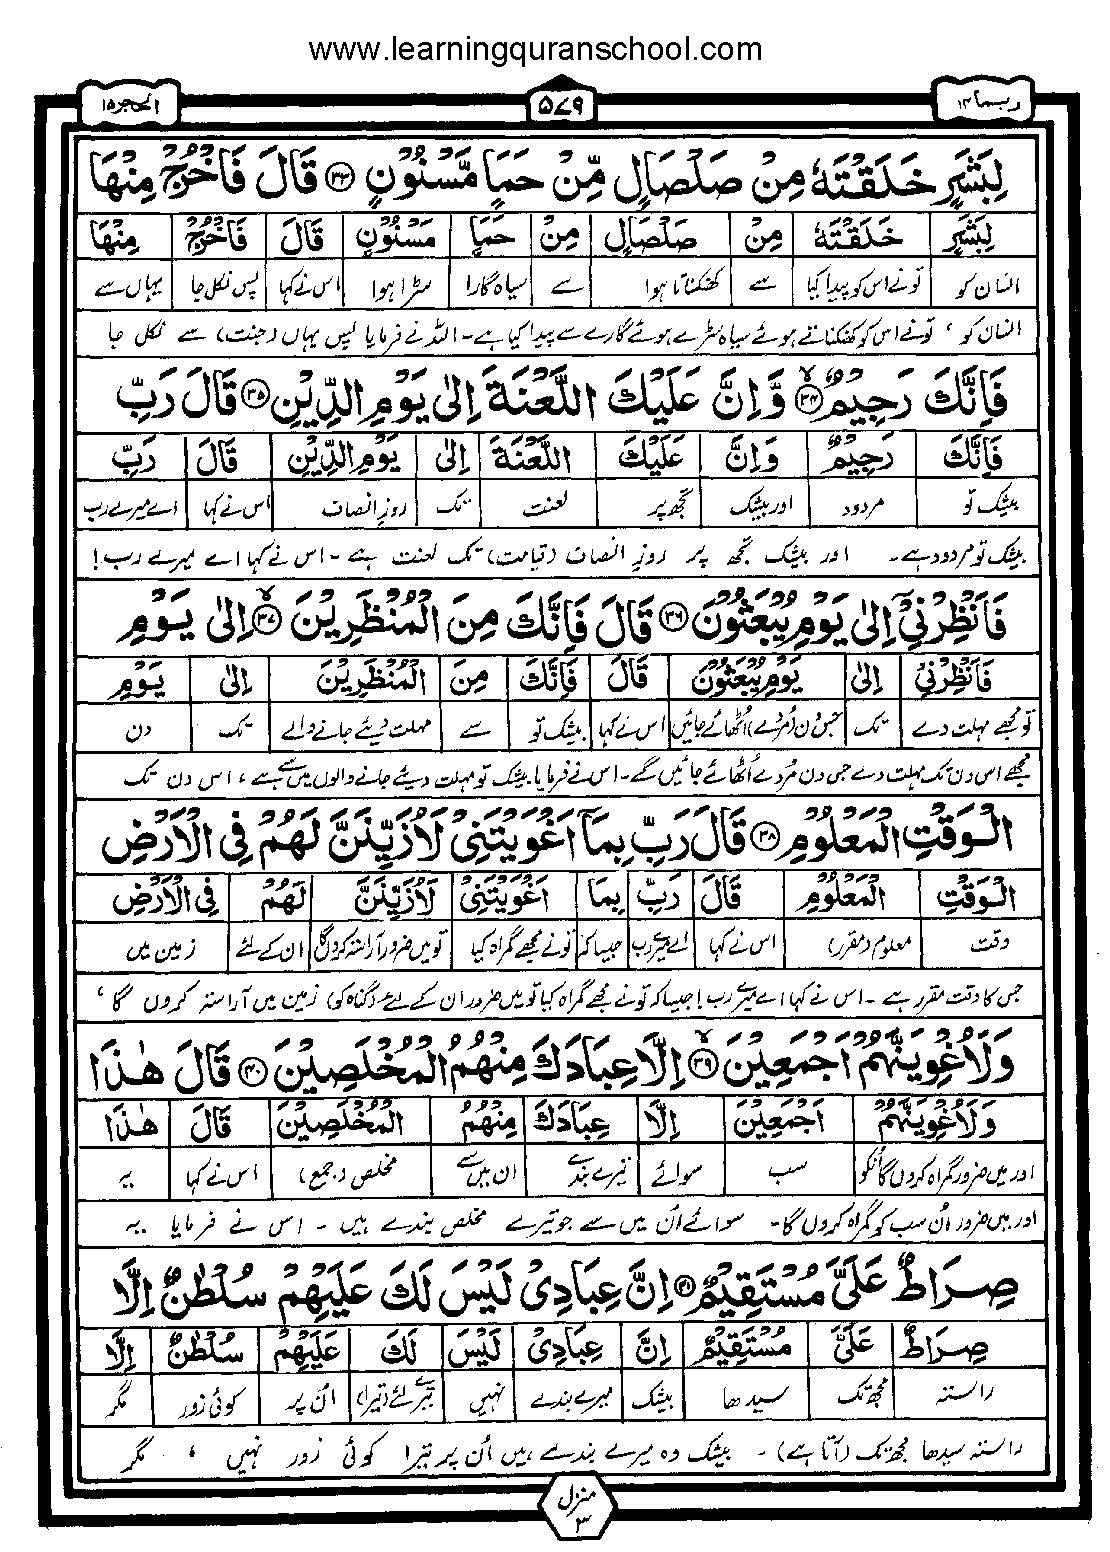 www.learningquranschool.com
ربما ۱۴
۵۷۹
الحجر ۱۵
لِبَشَرٍ خَلَقْتَهٗ مِنْ صَلْصَالٍ مِّنْ حَمَاٍ مَّسْنُوْنٍ ۳۳ قَالَ فَاخْرُجْ مِنْهَا
لِبَشَرٍ خَلَقْتَهٗ مِنْ صَلْصَالٍ مِنْ حَمَاٍ مَسْنُوْنٍ قَالَ فَاخْرُجْ مِنْهَا
انسان کو تونے اس کو پیدا کیا سے کھنکناتا ہوا سے سیاہ گارا سڑا ہوا اس نے کہا پس نکل جا یہاں سے
انسان کو ، تونے اس کو کھنکناتے ہوئے سیاہ سڑے ہوئے گارے سے پیدا کیا ہے۔ اللہ نے فرمایا پس یہاں (جنت) سے نکل جا
فَاِنَّكَ رَجِيْمٌ ۳۴ وَّاِنَّ عَلَيْكَ اللَّعْنَةَ اِلٰى يَوْمِ الدِّيْنِ ۳۵ قَالَ رَبِّ
فَاِنَّكَ رَجِيْمٌ وَاِنَّ عَلَيْكَ اللَّعْنَةَ اِلٰى يَوْمِ الدِّيْنِ قَالَ رَبِّ
بیشک تو مردود اور بیشک تجھ پر لعنت تک روزِ انصاف اس نے کہا اے میرے رب
بیشک تو مردود ہے۔ اور بیشک تجھ پر روزِ انصاف (قیامت) تک لعنت ہے ۔ اس نے کہا اے میرے رب!
فَاَنْظِرْنِيْٓ اِلٰى يَوْمِ يُبْعَثُوْنَ ۳۶ قَالَ فَاِنَّكَ مِنَ الْمُنْظَرِيْنَ ۳۷ اِلٰى يَوْمِ
فَاَنْظِرْنِيْ اِلٰى يَوْمِ يُبْعَثُوْنَ قَالَ فَاِنَّكَ مِنَ الْمُنْظَرِيْنَ اِلٰى يَوْمِ
تو مجھے مہلت دے تک جس دن (مُردے) اُٹھائے جائیں اس نے کہا بیشک تو سے مہلت دیئے جانے والے تک دن
مجھے اس دن تک مہلت دے جس دن مُردے اُٹھائے جائیں گے۔ اس نے فرمایا بیشک تو مہلت دیئے جانے والوں میں سے ہے ، اس دن تک
الْوَقْتِ الْمَعْلُوْمِ ۳۸ قَالَ رَبِّ بِمَآ اَغْوَيْتَنِيْ لَاُزَيِّنَنَّ لَهُمْ فِي الْاَرْضِ
الْوَقْتِ الْمَعْلُوْمِ قَالَ رَبِّ بِمَا اَغْوَيْتَنِيْ لَاُزَيِّنَنَّ لَهُمْ فِي الْاَرْضِ
وقت معلوم (مقرر) اس نے کہا اے میرے رب جیسا کہ تونے مجھے گمراہ کیا تو میں ضرور آراستہ کروں گا ان کے لئے زمین میں
جس کا وقت مقرر ہے ۔ اس نے کہا اے میرے رب! جیسا کہ تونے مجھے گمراہ کیا تو میں ضرور ان کے لئے (گناہ کو) زمین میں آراستہ کروں گا ،
وَلَاُغْوِيَنَّهُمْ اَجْمَعِيْنَ ۳۹ اِلَّا عِبَادَكَ مِنْهُمُ الْمُخْلَصِيْنَ ۴۰ قَالَ هٰذَا
وَلَاُغْوِيَنَّهُمْ اَجْمَعِيْنَ اِلَّا عِبَادَكَ مِنْهُمُ الْمُخْلَصِيْنَ قَالَ هٰذَا
اور میں ضرور گمراہ کروں گا اُنکو سب سوائے تیرے بندے ان میں سے مخلص (جمع) اس نے کہا یہ
اور میں ضرور اُن سب کو گمراہ کروں گا۔ سوائے اُن میں سے جو تیرے مخلص بندے ہیں ۔ اس نے فرمایا یہ
صِرَاطٌ عَلَيَّ مُسْتَقِيْمٌ ۴۱ اِنَّ عِبَادِيْ لَيْسَ لَكَ عَلَيْهِمْ سُلْطٰنٌ اِلَّا
صِرَاطٌ عَلَيَّ مُسْتَقِيْمٌ اِنَّ عِبَادِيْ لَيْسَ لَكَ عَلَيْهِمْ سُلْطٰنٌ اِلَّا
راستہ مجھ تک سیدھا بیشک میرے بندے نہیں تیرے لئے (تیرا) اُن پر کوئی زور مگر
راستہ سیدھا مجھ تک (آتا ہے) ۔ بیشک وہ میرے بندے ہیں اُن پر تیرا کوئی زور نہیں ، مگر
منزل ۳